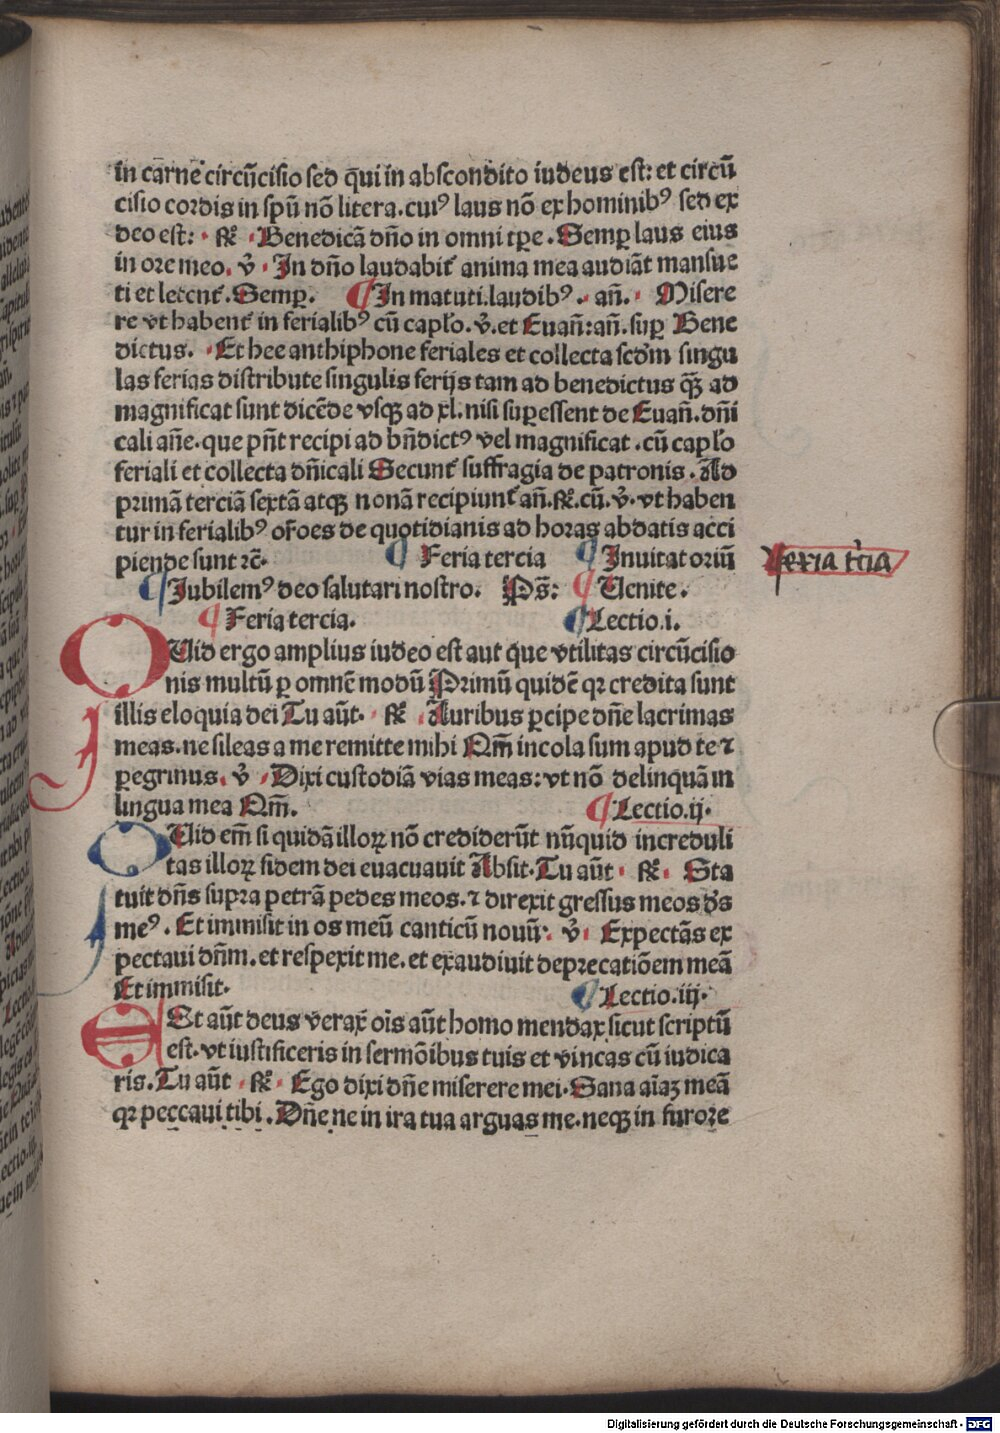 in carnē circūcisio sed q̄ui in abscondito iudeus est: et circū
cisio cordis in spū nō litera.cuiꝰ laus nō ex hominibꝰ sed ex
deo est: ℟ Benedicā dn̄o in omni tp̄e. Semp̱ laus eius
in ore meo. ℣ In dn̄o laudabit᷑ anima mea audiāt mansue
ti et letent᷑. Semp̱. ¶ In matuti.laudibꝰ. an̄. Misere
re vt habent᷑ in ferialibꝰ cū capło. ℣. et Euan̄: an̄. sup̱ Bene
dictus. Et hee anthiphone feriales et collecta scd̄m singu
las ferias distribute singulis ferijs tam ad benedictus qꝫ̄ ad
magnificat sunt dicēde vsqꝫ ad xl. nisi sup̱essent de Euan̄. dn̄i
cali an̄e. que pn̄t recipi ad bn̄dictꝰ vel magnificat. cū capło
feriali et collecta dn̄icali Secunt᷑ suffragia de patronis. Ad
primā terciā sextā atqꝫ nonā recipiunt᷑ an̄. ℟. cū. ℣. vt haben
tur in ferialibꝰ or̄oēs de quotidianis ad horas abdatis acci
piende sunt ⁊c̄.
¶ Feria tercia ¶ Inuitatoriū
Feria t̄cia
¶ Iubilemꝰ deo salutari nostro. Ps̄: ¶ Uenite.
¶ Feria tercia. ¶ Lectio.i.
QUid ergo amplius iudeo est aut que vtilitas circūcisio
nis multū p̱ omnē modū Primū quidē qꝛ credita sunt
illis eloquia dei Tu aūt. ℟ Auribus p̱cipe dn̄e lacrimas
meas. ne sileas a me remitte mihi Qm̄ incola sum apud te ⁊
p̱egrinus. ℣ Dixi custodiā vias meas: vt nō delinquā in
lingua mea Qm̄. ¶ Lectio.ij.
QUid em̄ si quidā illoꝝ nō crediderūt nūquid increduli
tas illoꝝ fidem dei euacuauit Absit. Tu aūt ℟ Sta
tuit dn̄s supra petrā pedes meos. ⁊ direxit gressus meos d̄s
meꝰ. Et immisit in os meū canticū nouū. ℣ Expectās ex
pectaui dn̄m. et respexit me. et exaudiuit deprecatiōem meā
Et immisit. ¶ Lectio.iij.
ESt aūt deus verax ois̄ aūt homo mendax sicut scriptū
est. vt iustificeris in sermōibus tuis et vincas cū iudica
ris. Tu aūt ℟ Ego dixi dn̄e miserere mei. Sana aīaꝫ meā
qꝛ peccaui tibi. Dn̄e ne in ira tua arguas me. neqꝫ in furore
Digitalisierung gefördert durch die Deutsche Forschungsgemeinschaft - DFG